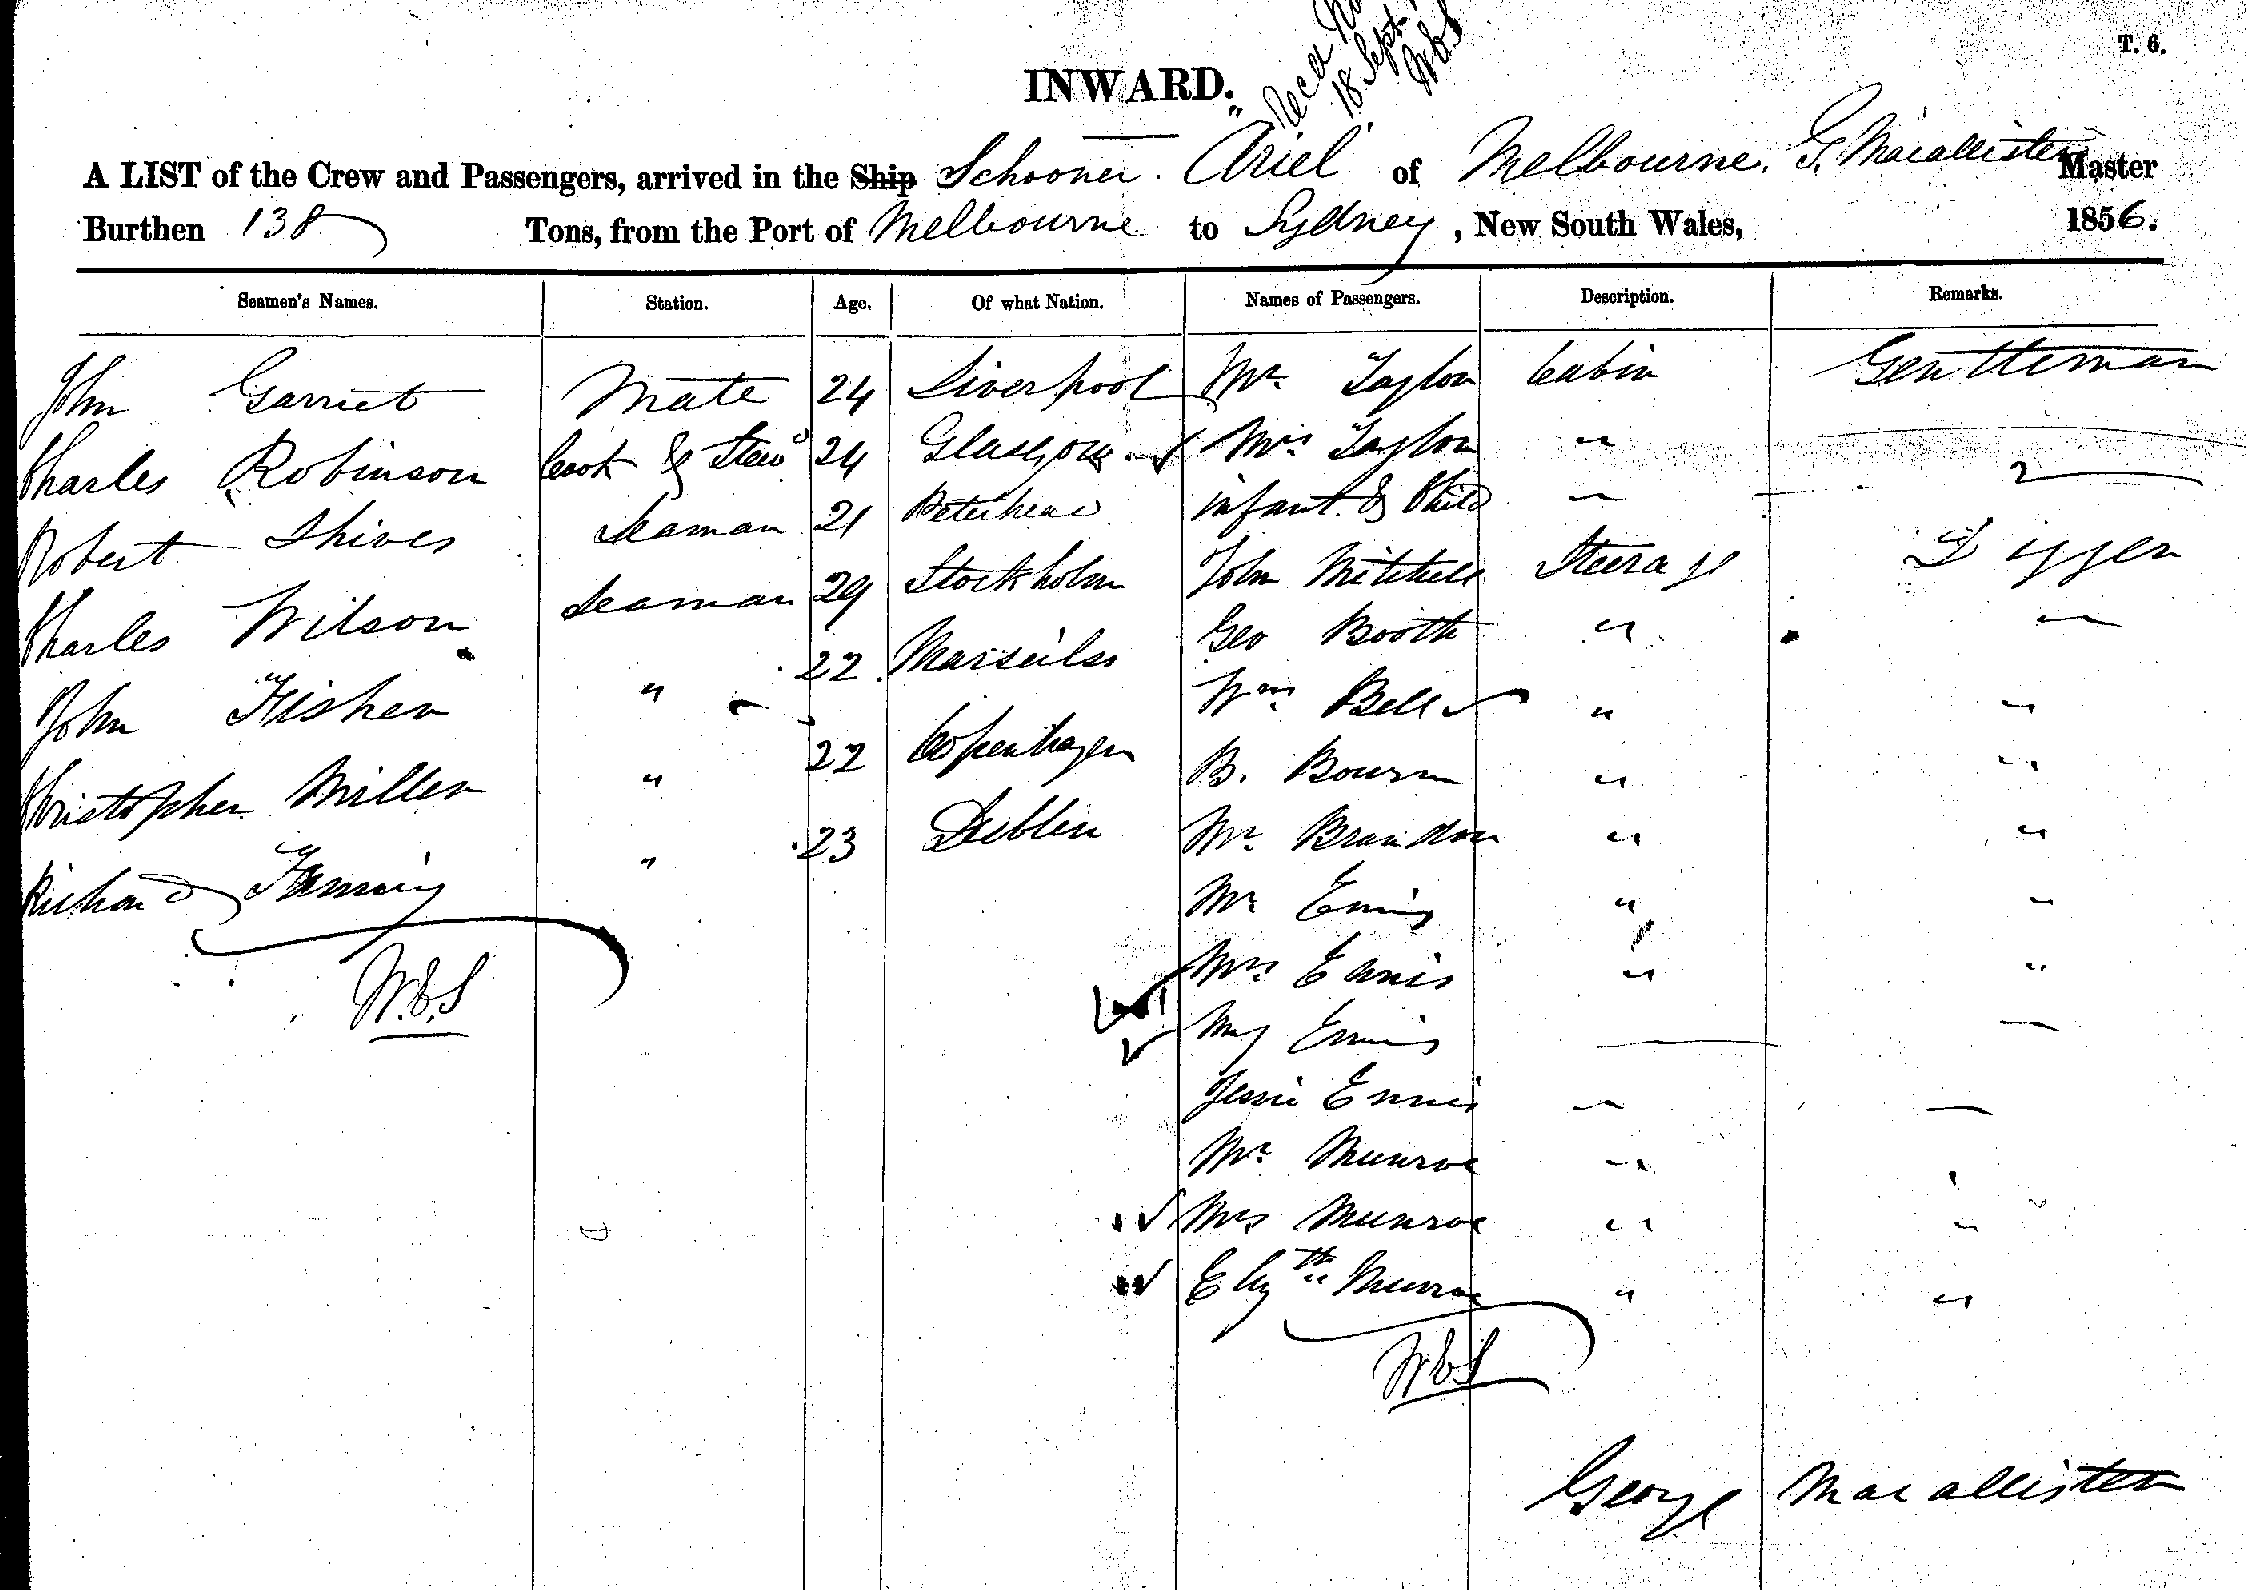 T. 6.
INWARD.
18 Sept.
W.E.S
A LIST of the Crew and Passengers, arrived in the Ship Schooner "Ariel" of Melbourne. G. Macallister Master
Burthen 138 Tons, from the Port of Melbourne to Sydney, New South Wales, 1856.
Seamen's Names. Station. Age. Of what Nation. Names of Passengers. Description. Remarks.
John Garriet Mate 24 Liverpool Mr. Taylor Cabin Gentleman
Charles Robinson Cook & Stewd 24 Glasgow Mrs Taylor "
Robert Shives Seaman 21 Peterhead infant & Child "
Charles Wilson Seaman 29 Stockholm John Mitchell Steerage Digger
John Fisher " 22 Marseiles Geo Booth " "
Christopher Miller " 22 Copenhagen Wm. Bell " "
Richard " 23 Dublin B. Bourn " "
Mr. Brandon " "
Mr Ennis " "
Mrs Ennis " "
Ennis
Jessie Ennis "
Mr. Munroe "
Mrs Munroe " "
Elizth Munroe " "
W.E.S
W.E.S
George Macallister